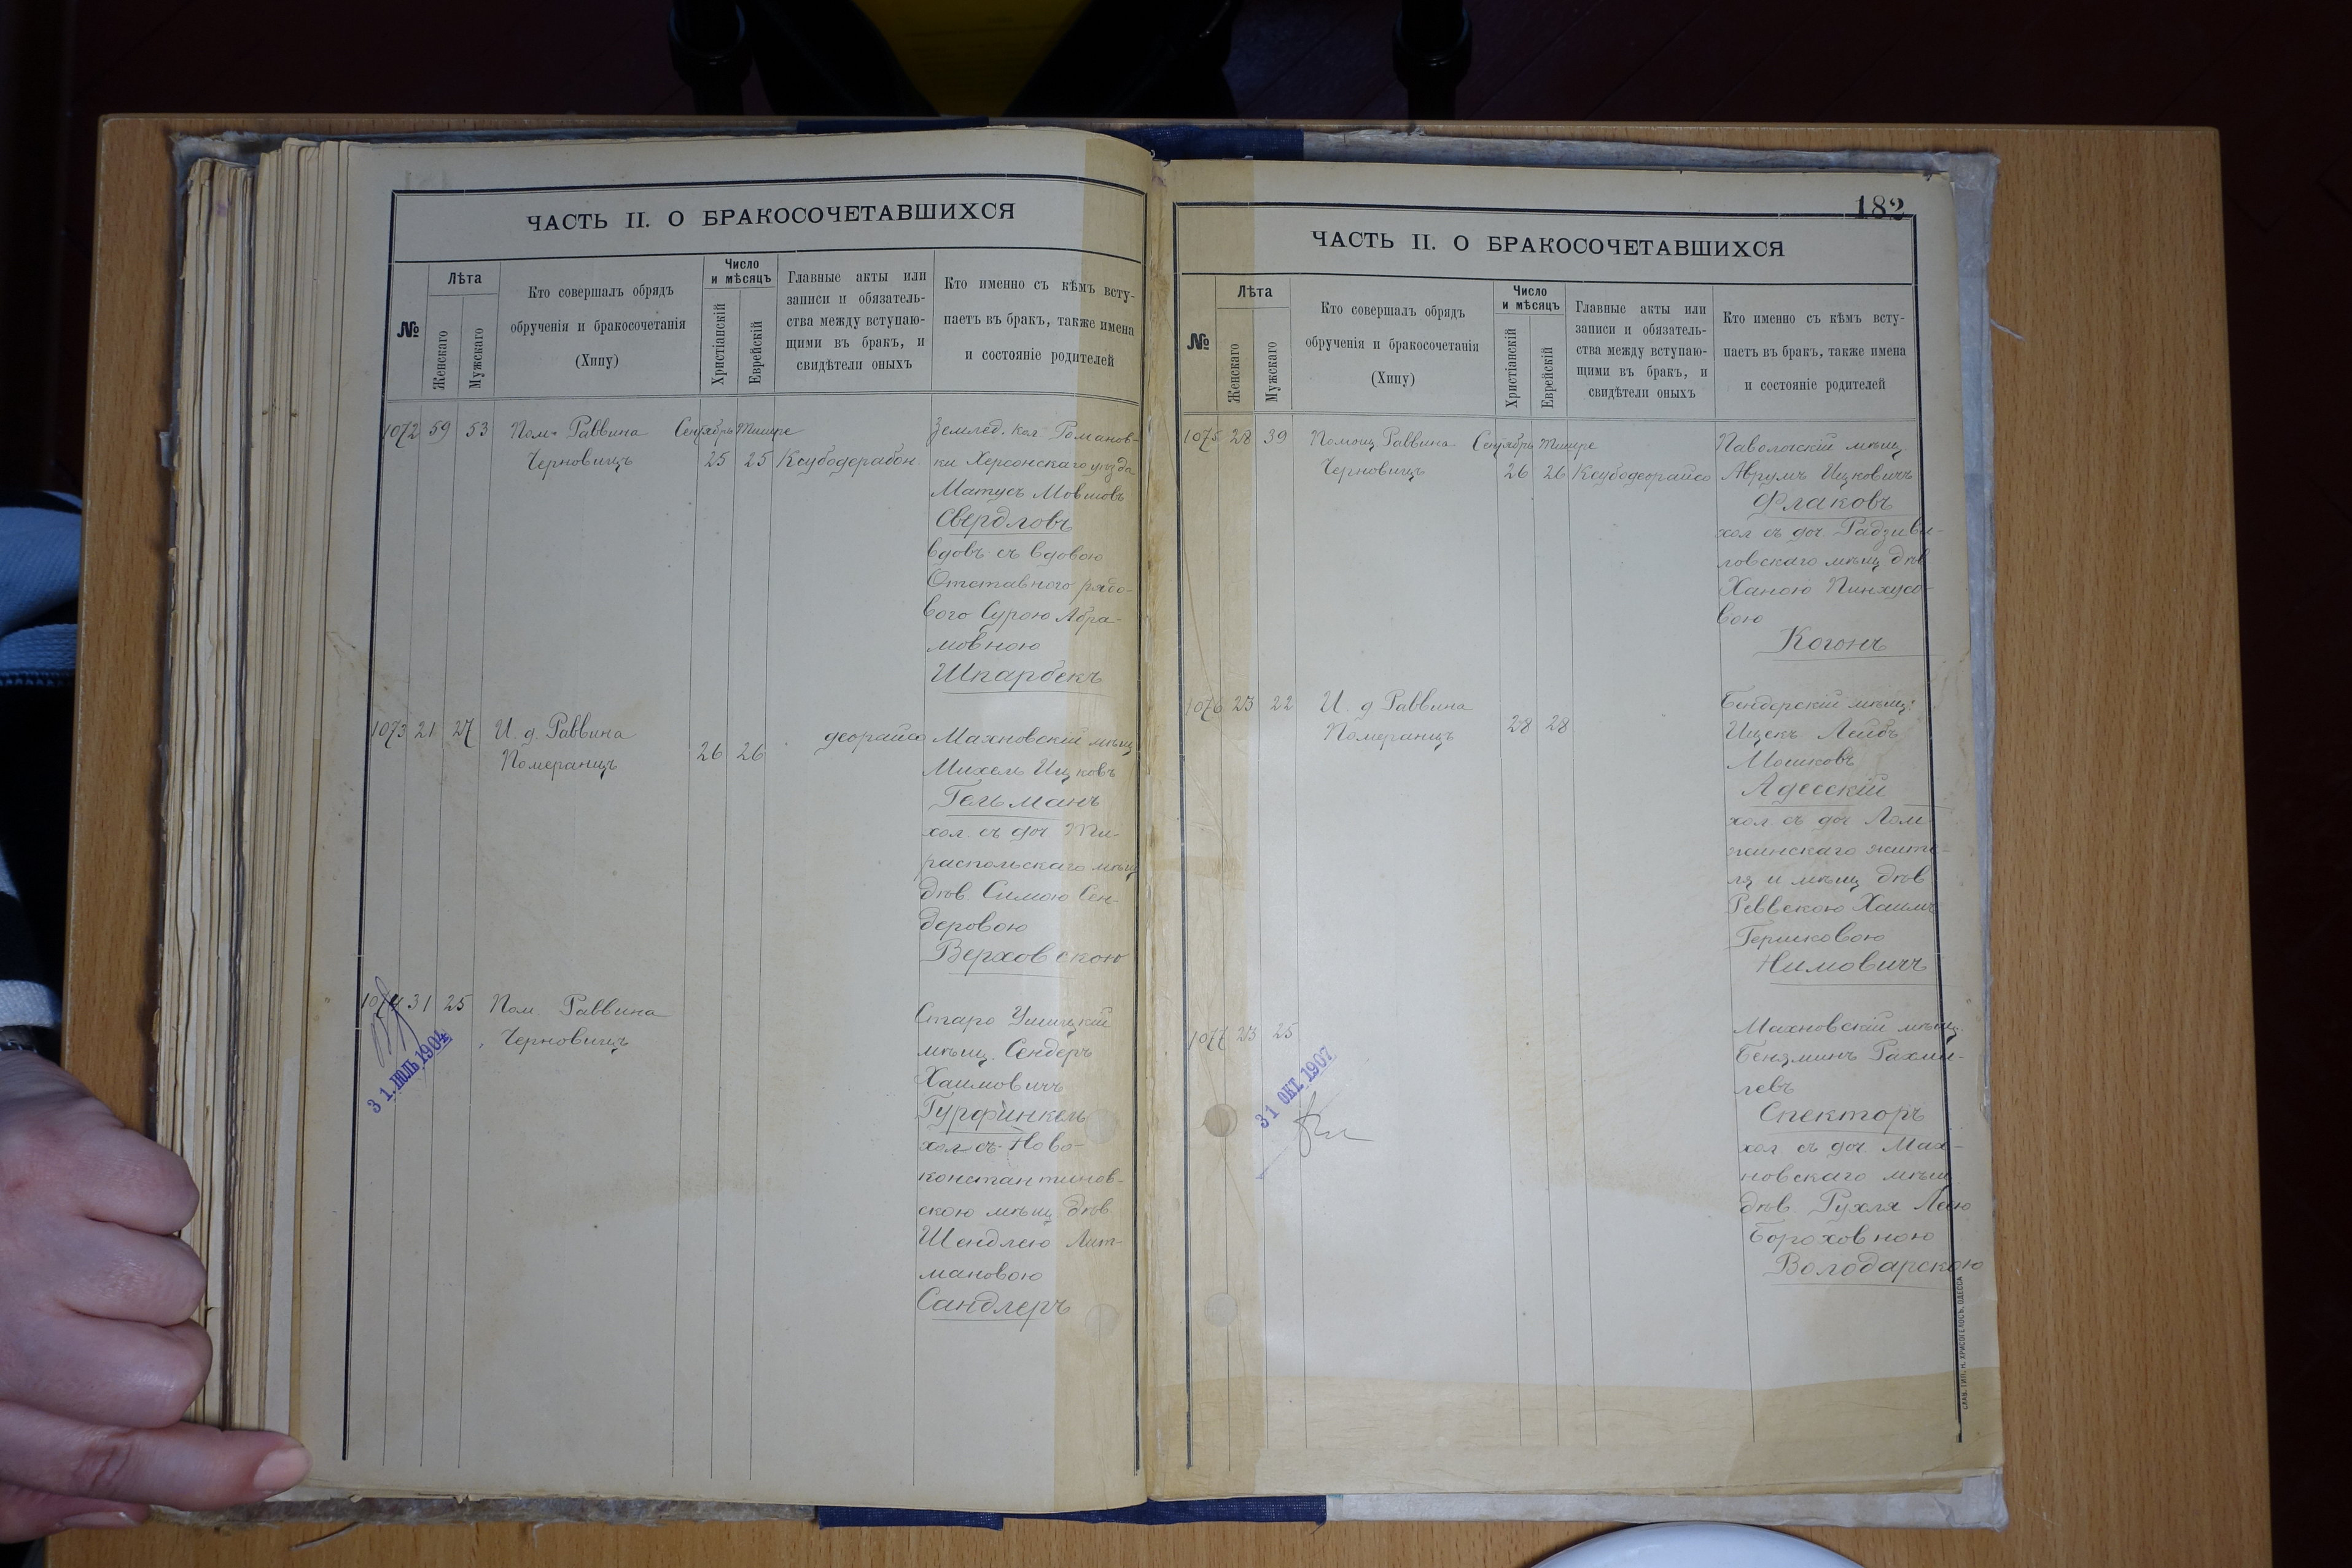 ЧАСТЬ II. О БРАКОСОЧЕТАВШИХСЯ
№
Лѣта
Женскаго
Мужскаго
Кто совершалъ обрядъ
обрученія и бракосочетанія
(Хипу)
Число
и мѣсяцъ
Христіанскій
Еврейскій
Главные акты или
записи и обязатель-
ства между вступаю-
щими въ бракъ, и
свидѣтели оныхъ
Кто именно съ кѣмъ всту-
паетъ въ бракъ, также имена
и состояніе родителей
1072 59 53 Пом. Раввина Сентябрь Тишре Землед. кол. Романов-
Черновицъ 25 25 Ксубодерабон. ки Херсонскаго уѣзда
Матусъ Мовшовъ
Свердловъ
вдовъ съ вдовою
Отставного рядо-
вого Сурою Абра-
мовною
Шкарбекъ
1073 21 27 И. д. Раввина деорайсо Махновскій мѣщ
Померанцъ 26 26 Михель Ицковъ
Гельманъ
хол. съ доч Ти-
распольскаго мѣщ
дѣв. Симою Сен-
деровою
Верховскою
1074 31 25 Пом Раввина Старо Ушицкій
Черновицъ мѣщ. Сендеръ
Хаимовичъ
Гурфинкель
хол съ Ново-
константинов-
скою мѣщ. дѣв.
Шендлею Лит-
мановою
Сандлеръ
31. ІЮЛЬ 1904
182
ЧАСТЬ II. О БРАКОСОЧЕТАВШИХСЯ
№
Лѣта
Женскаго
Мужскаго
Кто совершалъ обрядъ
обрученія и бракосочетанія
(Хипу)
Число
и мѣсяцъ
Христіанскій
Еврейскій
Главные акты или
записи и обязатель-
ства между вступаю-
щими въ бракъ, и
свидѣтели оныхъ
Кто именно съ кѣмъ всту-
паетъ въ бракъ, также имена
и состояніе родителей
1075 28 39 Помощ Раввина Сентябрь Тишре Паволочскій мѣщ
Черновицъ 26 26 Ксубодеорайсо Аврумъ Ицковичъ
Флаковъ
хол съ доч Радзиви-
ловскаго мѣщ дѣв
Ханою Пинхусо-
вою
Когонъ
1076 23 22 И. д Раввина Бендерскій мѣщ.
Померанцъ 28 28 Ицекъ Лейбъ
Мошковъ
Адесскій
хол. съ доч Лом-
жинскаго жите-
ля и мѣщ дѣв
Реввекою Хаимъ
Гершковою
Нимовичъ
1077 23 25 Махновскій мѣщ.
Беняминъ Рахми-
левъ
Спекторъ
хол съ доч. Мах-
новскаго мѣщ
дѣв. Рухля Леею
Бороховною
Володарскою
31 ОКТ. 1907
СЛАВ. ТИП. Н. ХРИСОГЕЛОСЪ, ОДЕССА